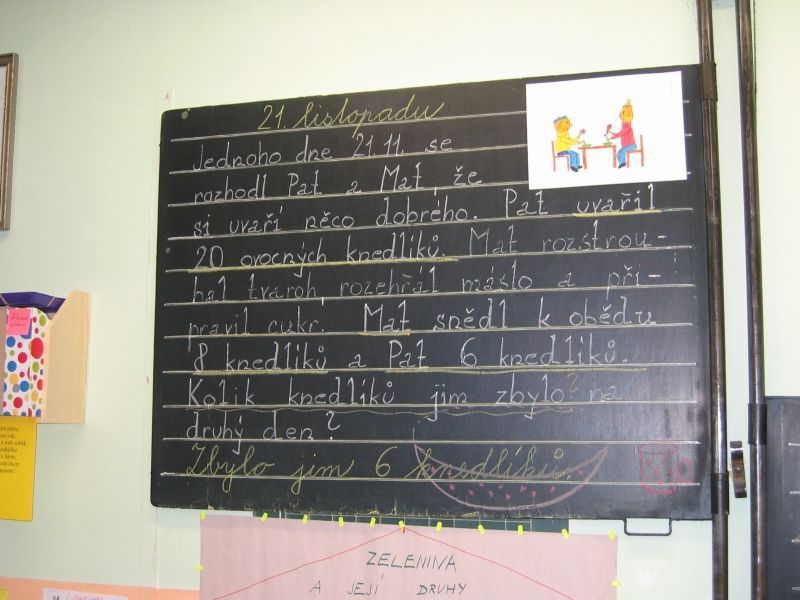 21. listopadu
Jednoho dne 21.11. se
rozhodl Pat a Mat, že
si uvaří něco dobrého. Pat uvařil
20 ovocných knedlíků. Mat rozstrou-
hal tvaroh, rozehřál máslo a při-
pravil cukr. Mat snědl k obědu
8 knedlíků a Pat 6 knedlíků.
Kolik knedlíků jim zbylo? na
druhý den?
Zbylo jim 6 knedlíků.
ZELENINA
A JEJÍ DRUHY